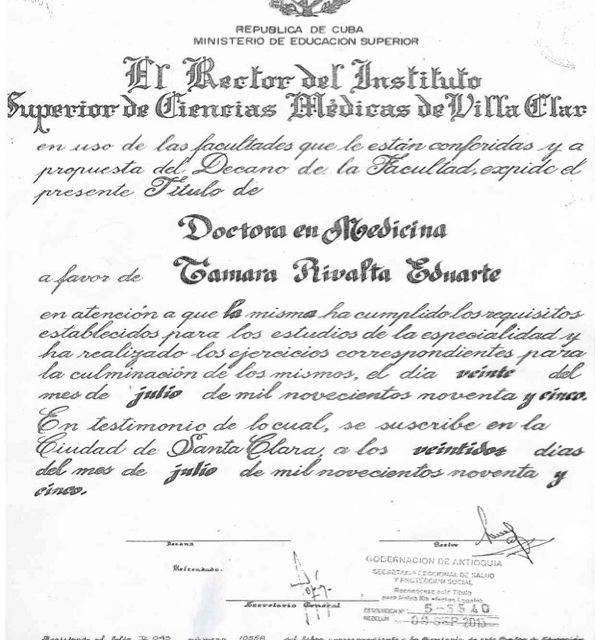 REPUBLICA DE CUBA
MINISTERIO DE EDUCACION SUPERIOR
El Rector del Instituto
Superior de Ciencias Médicas de Villa Clar
en uso de las facultades que le están conferidas y a
propuesta del Decano de la Facultad, expide el
presente Título de
Doctora en Medicina
a favor de Tamara Rivalta Eduarte
en atención a que la misma ha cumplido los requisitos
establecidos para los estudios de la especialidad y
ha realizado los ejercicios correspondientes para
la culminación de los mismos, el día veinte del
mes de julio de mil novecientos noventa y cinco.
En testimonio de lo cual, se suscribe en la
Ciudad de Santa Clara, a los veintidos días
del mes de julio de mil novecientos noventa y
cinco.
Decano
Rector
Refrendado:
Secretario General
GOBERNACION DE ANTIOQUIA
SECRETARIA SECCIONAL DE SALUD
Y PROTECCION SOCIAL
Reconócese este Título
para todos los efectos Legales
RESOLUCION Nº 5-5540
MEDELLIN 09 SEP 2013
Registrado al folio número 10558 del libro